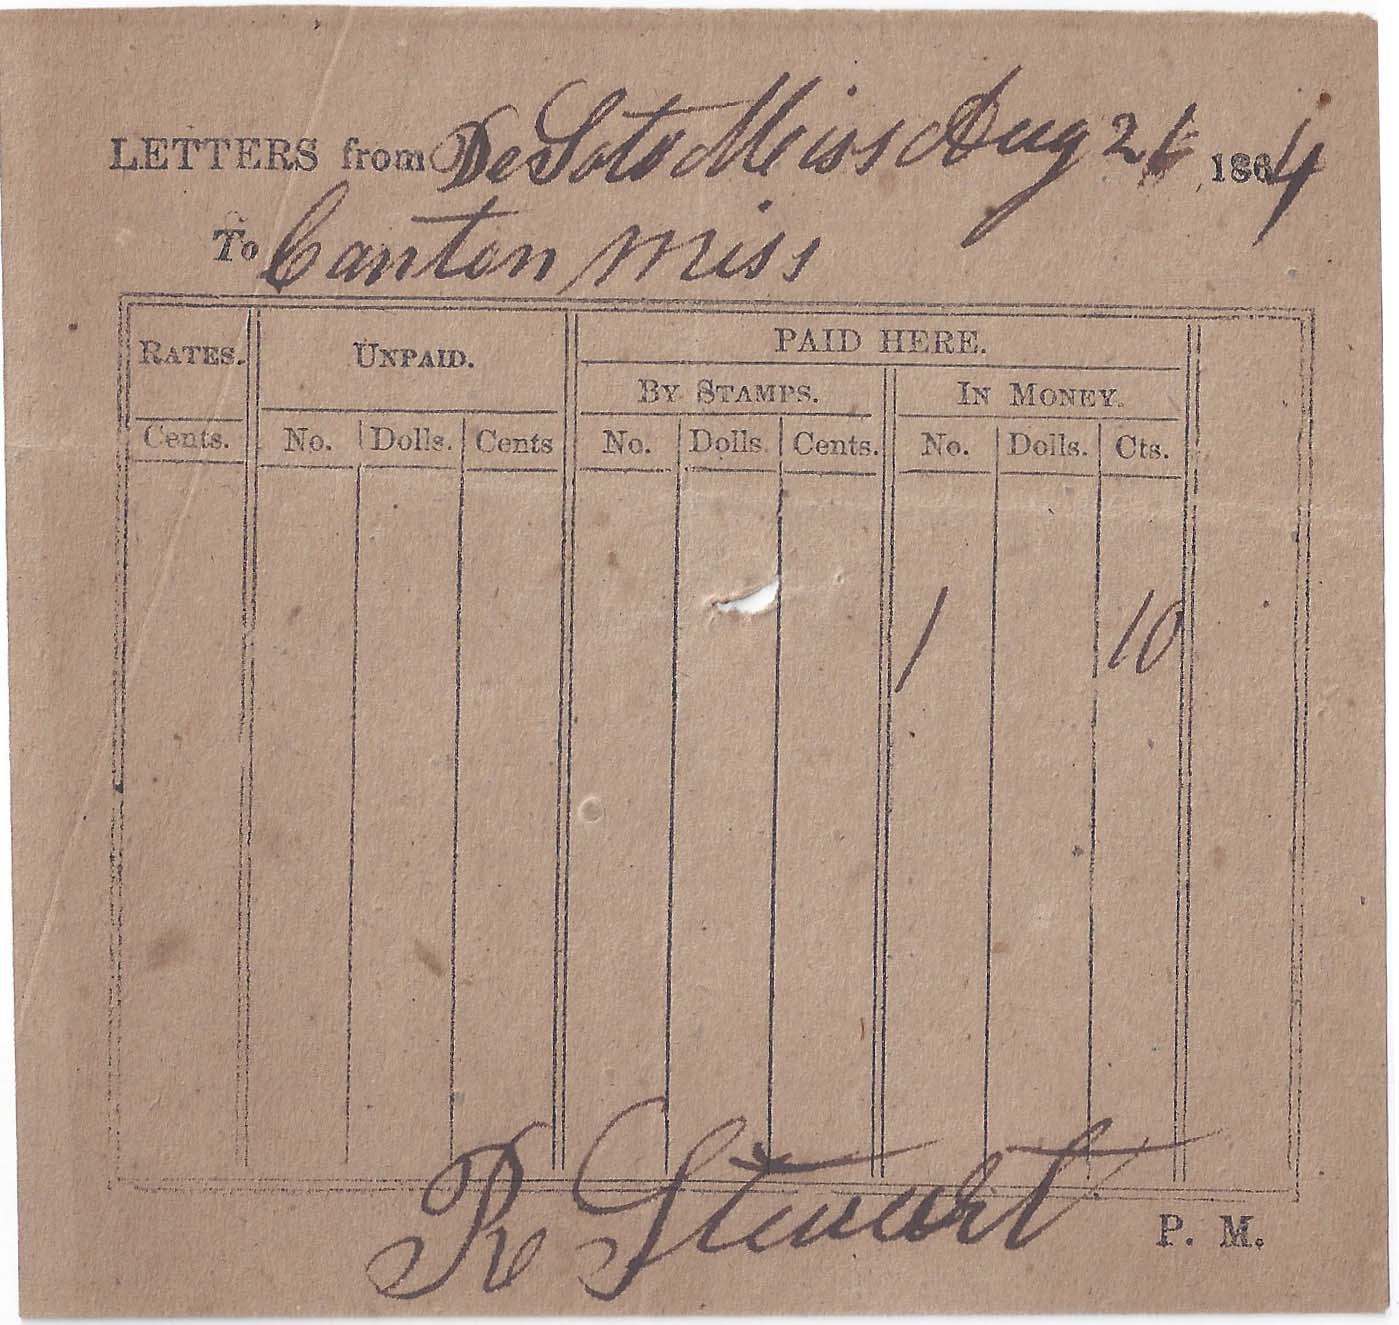 LETTERS from De Soto Miss Aug 1864
To Canton Miss
RATES. UNPAID. PAID HERE.
BY STAMPS. IN MONEY.
Cents. No. Dolls. Cents No. Dolls. Cents. No. Dolls. Cts.
1 10
R Stewart
P. M.